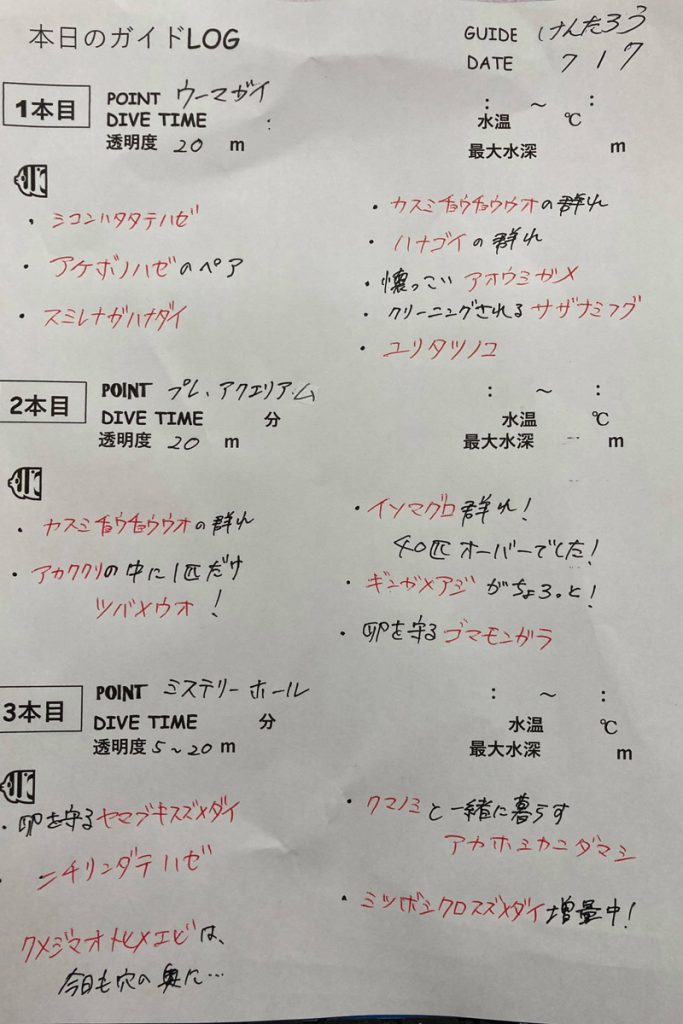 本日のガイドLOG
GUIDE けんたろう
DATE 7 17
1本目
POINT ウーマガイ
DIVE TIME :
透明度 20 m
: ～ :
水温 ℃
最大水深 m
・シコンハタタテハゼ
・アケボノハゼのペア
・スミレナガハナダイ
・カスミチョウチョウウオの群れ
・ハナゴイの群れ
・懐っこい アオウミガメ
・クリーニングされる サザナミフグ
・ユリタツノコ
2本目
POINT プレ、アクエリアーム
DIVE TIME 分
透明度 20 m
: ～ :
水温 ℃
最大水深 m
・カスミチョウチョウウオの群れ
・アカククリの中に1匹だけ
ツバメウオ!
・イソマグロ群れ!
40匹オーバーでした!
・ギンガメアジがちょろっと!
・卵を守るゴマモンガラ
3本目
POINT ミステリーホール
DIVE TIME 分
透明度 5～20 m
: ～ :
水温 ℃
最大水深 m
・卵を守るヤマブキスズメダイ
・ニチリンダテハゼ
クメジマオトヒメエビは、
今日も穴の奥に…
・クマノミと一緒に暮らす
アカホシカニダマシ
・ミツボシクロスズメダイ増量中!